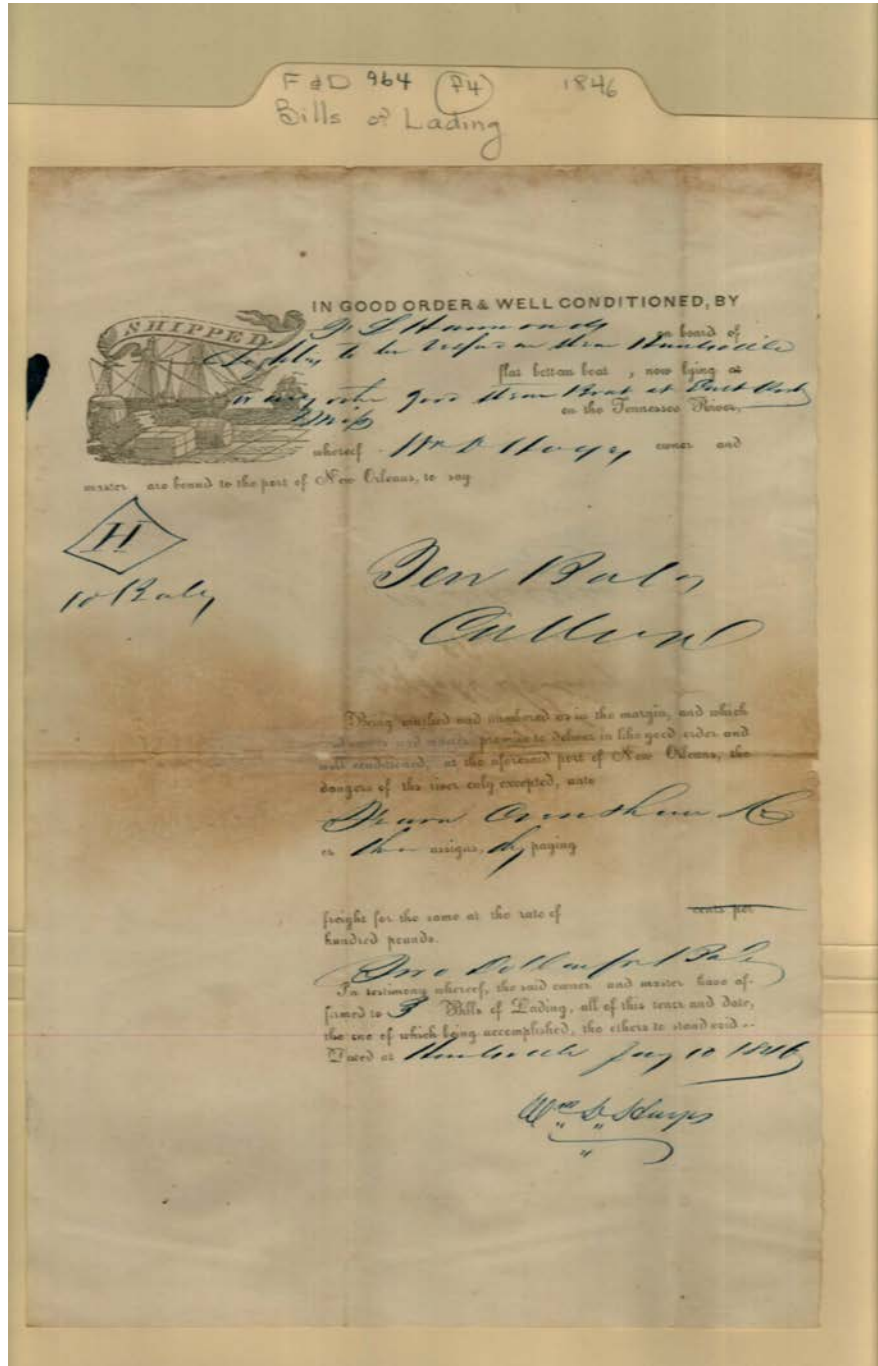 F&D 964 (P4) 1846
Bills of Lading
SHIPPED
IN GOOD ORDER & WELL CONDITIONED, BY
F S Hammonds on board of
to be on Steam Huntsville
flat bottom boat , now lying at
or any other good Steam Boat at
on the Tennessee River,
whereof Wm D owner and
master are bound to the port of New Orleans, to say
H
10 Bales
Ten Bales
Cotton
Being marked and numbered as in the margin, and which
said owner and master promise to deliver in like good order and
well conditioned, at the aforesaid port of New Orleans, the
dangers of the river only excepted, unto
Crenshaw & Co
or their assigns, they paying
freight for the same at the rate of cents per
hundred pounds.
Two Dollars per Bale
In testimony whereof, the said owner and master have af-
firmed to 3 Bills of Lading, all of this tenor and date,
the one of which being accomplished, the others to stand void--
Dated at Huntsville Jany 10 1846
Wm D